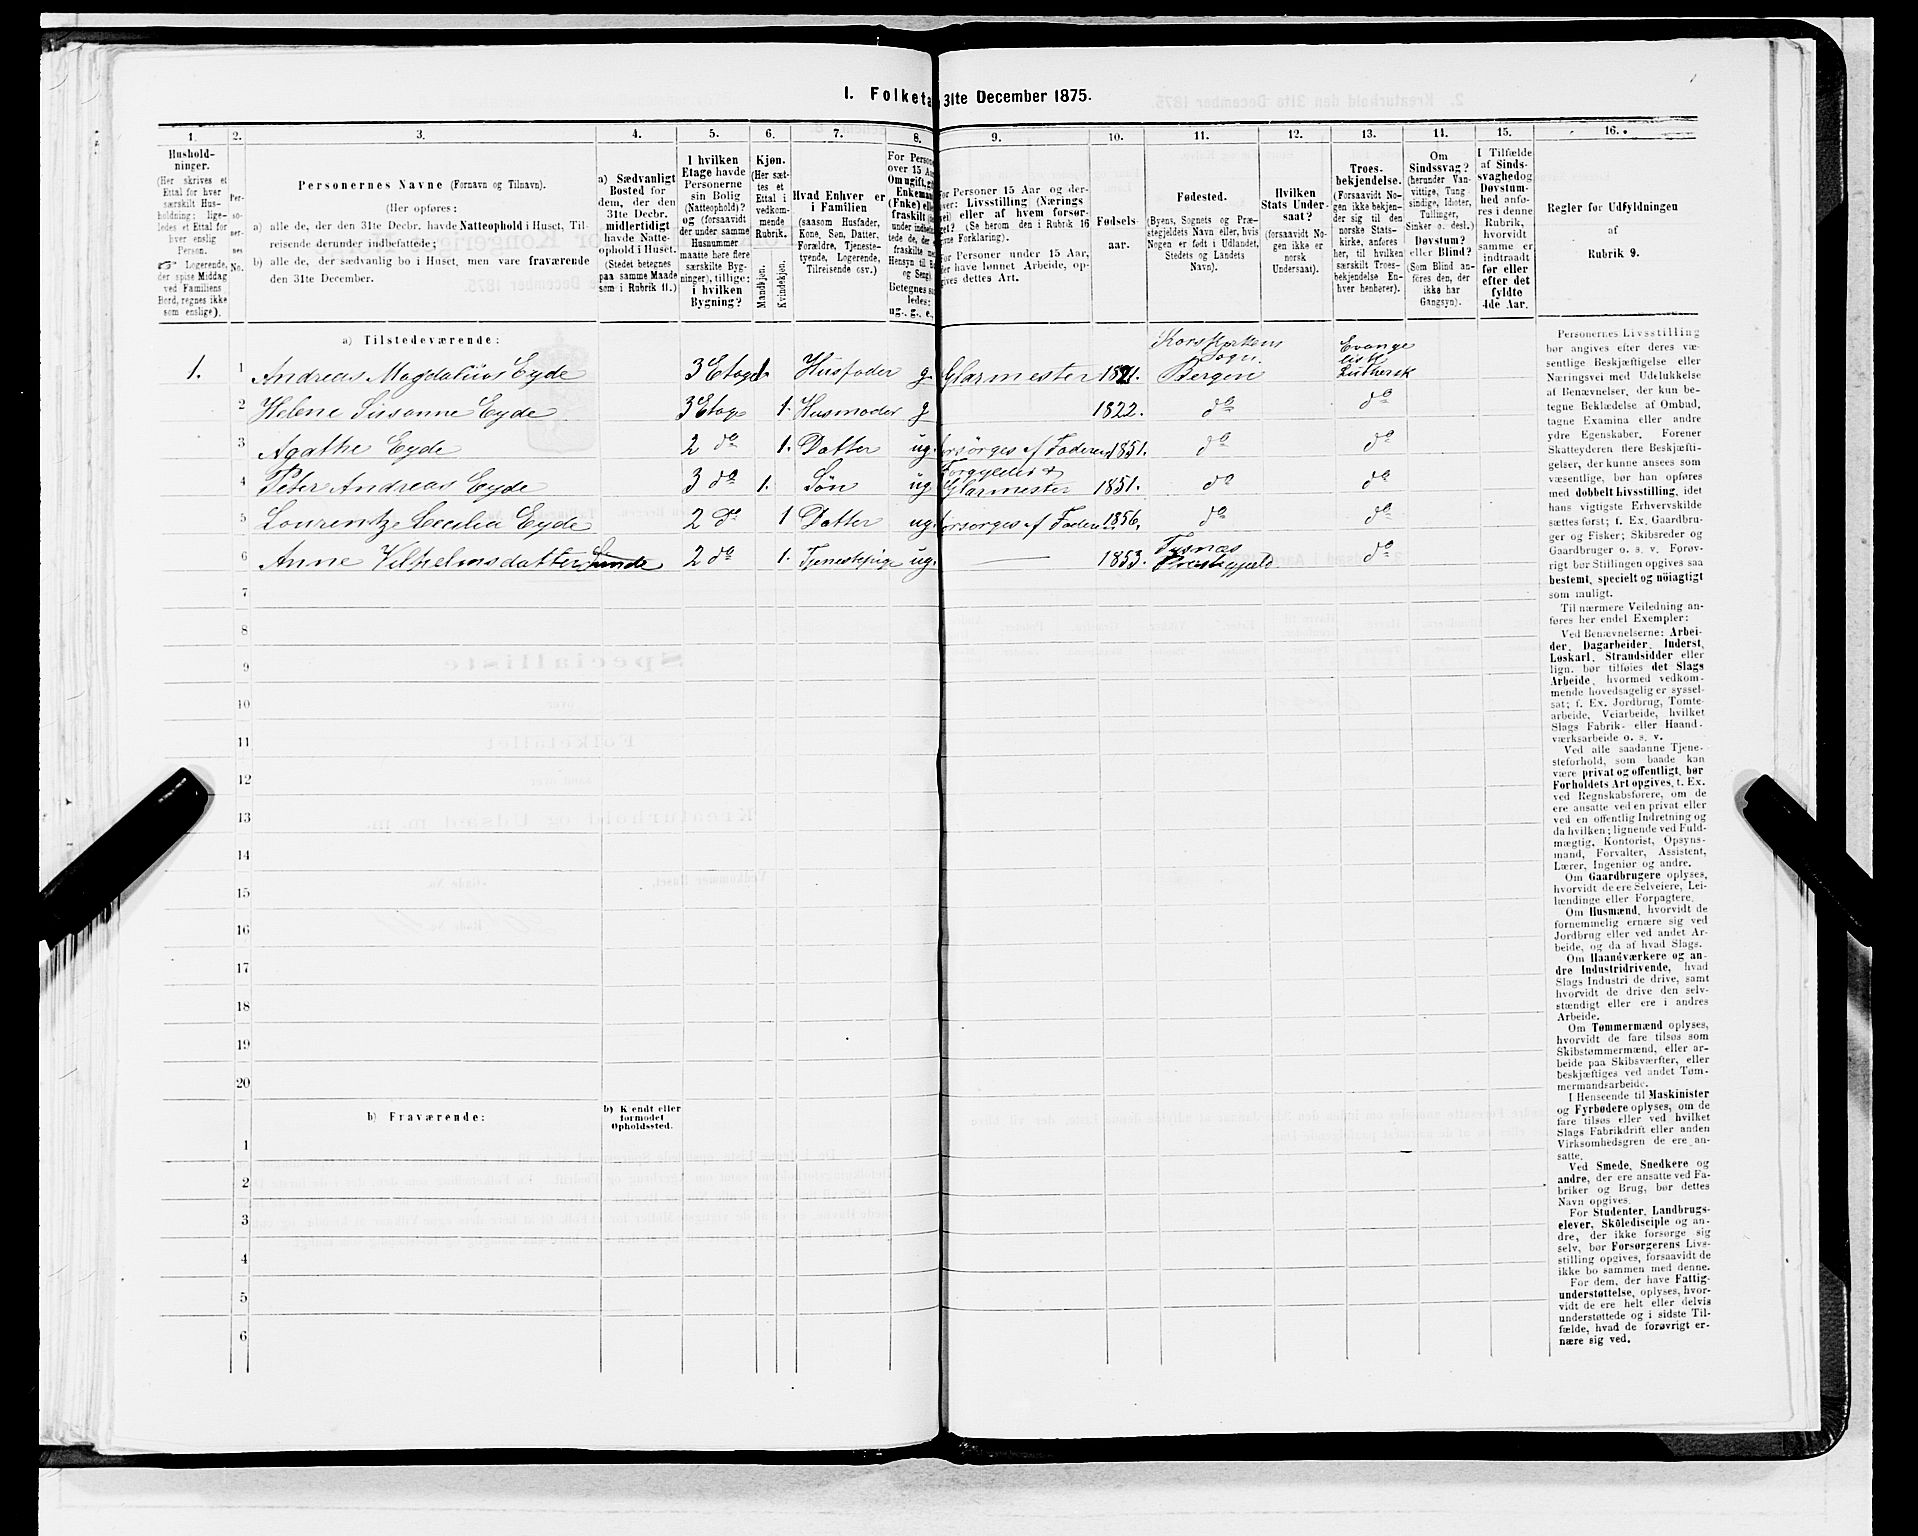 1. Folketa 31te December 1875.
1. 2. 3. 4. 5. 6. 7. 8. 9. 10. 11. 12. 13. 14. 15. 16.
Hushold-
ninger.
(Her skrives et
Ettal for hver
særskilt Hus-
holdning; lige-
ledes et Ettal for
hver enslig
Person.
Logerende,
der spise Middag
ved Familiens
Bord, regnes ikke
som enslige).
Per-
so-
ner-
nes
No.
Personernes Navne (Fornavn og Tilnavn).
(Her opføres:
a) alle de, der den 31te Decbr. havde Natteophold i Huset, Til-
reisende derunder indbefattede;
b) alle de, der sædvanlig bo i Huset, men vare fraværende
den 31te December.
a) Sædvanligt
Bosted for
dem, der den
31te Decbr.
midlertidigt
havde Natte-
ophold i Huset.
(Stedet betegnes
paa samme Maade
som i Rubrik 11.)
I hvilken
Etage havde
Personerne
sin Bolig
(Natteophold)?
og (forsaavidt
der under samme
Husnummer
maatte høre flere
særskilte Byg-
ninger), tillige:
i hvilken
Bygning?
Kjøn.
(Her sæt-
tes et
Ettal i
vedkom-
mende
Rubrik.
Mandkjøn.
Kvindekjøn.
Hvad Enhver er
i Familien
(saasom Husfader,
Kone, Søn, Datter,
Forældre, Tjeneste-
tyende, Logerende,
Tilreisende osv.)
For Persone
over 15 Aa
Om ugift, g
Enkeman
(Fnke) elle
fraskilt (de
under indbefat-
tede de, der e
fraskilte me
Hensyn til B
og Seng).
Betegnes sa
ledes:
ug., g., e.,
For Personer 15 Aar og der-
over: Livsstilling (Nærings
vei) eller af hvem forsør-
get? (Se herom den i Rubrik 16
givne Forklaring).
For Personer under 15 Aar,
der have lønnet Arbeide, op-
gives dettes Art.
Fødsels-
aar.
Fødested.
(Byens, Sognets og Præ-
stegjeldets Navn eller, hvis
Nogen er født i Udlandet,
Stedets og Landets
Navn).
Hvilken
Stats Under-
saat?
(forsaavidt No-
gen ikke er
norsk
Undersaat).
Troes-
bekjendelse.
(Forsaavidt No-
gen ikke bekjen-
der sig til den
norske Stats-
kirke, anføres
her, til hvilken
særskilt Troes-
bekjendelse En-
hver henhører).
Om
Sindssvag?
(herunder Van-
vittige, Tung
sindige, Idioter,
Tullinger,
Sinker o. desl.)
Døvstum?
eller Blind?
(Som Blind an-
føres den, der
ikke har
Gangsyn).
I Tilfælde
af Sinds-
svaghed og
Døvstum-
hed anfø-
res i denne
Rubrik,
hvorvidt
samme er
indtraadt
før eller
efter det
fyldte
4de Aar.
Regler før Udfyldningen
af
Rubrik 9.
a) Tilstedeværende:
1. 1 Andreas Magdalius Eyde 3 Etage 1. Husfader g. Glarmester 1821. Korskirkens Sogn. Bergen Evangelisk Luthersk
2 Helene Susanne Eyde 3 Etage 1. Husmoder g 1822. do do
3 Agathe Eyde 2 do 1. Datter ug. forsørges af Faderen 1851. do do
4 Peter Andreas Eyde 3 do 1. Søn ug Forgylder & Glarmester 1851. do do
5 Lourentze Cecilia Eyde 2 do 1 Datter ug. forsørges af Faderen 1856. do do
6 Anne Vilhelmsdatter Lunde 2 do 1. Tjenestepige ug. — 1853. Tysnæs Præstegjeld do
7
8
9
10
11
12
13
14
15
16
17
18
19
20
b) Fraværende:
b) Kjendt eller
formodet
Opholdssted.
1
2
3
4
5
6
Personernes Livsstilling
bør angives efter deres væ-
sentlige Beskjæftigelse eller
Næringsvei med Udelukkelse
af Benævnelser, der kun be-
tegne Beklædelse af Ombud,
tagne Examina eller andre
ydre Egenskaber. Forener
Skatteyderen flere Beskjæfti-
gelser, der kunne ansees som
væsentlige, bør han opføres
med dobbelt Livsstilling, idet
hans vigtigste Erhvervskilde
sættes først; f. Ex. Gaardbru-
ger og Fisker; Skibsreder og
Gaardbruger o. s. v. Forøv-
rigt bør Stillingen opgives saa
bestemt, specielt og nöiagtigt
som muligt.
Til nærmere Veiledning an-
føres her endel Exempler:
Ved Benævnelserne: Arbei-
der, Dagarbeider, Inderst,
Løskarl, Strandsidder eller
lign. bør tilføies det Slags
Arbeide, hvormed vedkom-
mende hovedsagelig er syssel-
sat; f. Ex. Jordbrug, Tomte-
arbeide, Veiarbeide, hvilket
Slags Fabrik- eller Haand-
værksarbeide o. s. v.
Ved alle saadanne Tjene-
steforhold, som baade kan
være privat og offentligt, bør
Forholdets Art opgives, t. Ex.
ved Regnskabsførere, om de
ere ansatte ved en privat eller
ved en offentlig Indretning og
da hvilken; lignende ved Fuld-
mægtig, Kontorist, Opsyns-
mand, Forvalter, Assistent,
Lærer, Ingeniør og andre.
Om Gaardbrugere oplyses,
hvorvidt de ere Selveiere, Lei-
lændinge eller Forpagtere.
Om Husmænd, hvorvidt de
fornemmelig ernære sig ved
Jordbrug eller ved andet Ar-
beide, og da af hvad Slags.
Om Haandværkere og an-
dre Industridrivende, hvad
Slags Industri de drive, samt
hvorvidt de drive den selv-
stændigt eller ere i andres
Arbeide.
Om Tømmermænd oplyses,
hvorvidt de fare tilsøs som
Skibstømmermænd, eller ar-
beide paa Skibsværfter, eller
beskjæftiges ved andet Tøm-
mermandsarbeide.
I Henseende til Maskinister
og Fyrbødere oplyses, om de
fare tilsøs eller ved hvilket
Slags Fabrikdrift eller anden
Virksomhedsgren de ere an-
satte.
Ved Smede, Snedkere og
andre, der ere ansatte ved Fa-
briker og Brug, bør dettes
Navn opgives.
For Studenter, Landbrugs-
elever, Skôledisciple og an-
dre, der ikke forsørge sig
selv, bør Forsørgerens Livs-
stilling opgives, forsaavidt de
ikke bo sammen med denne.
For dem, der have Fattig-
understøttelse, oplyses, hvor-
vidt de ere helt eller delvis
understøttede og i sidste Til-
fælde, hvad de forøvrigt er-
nære sig ved.